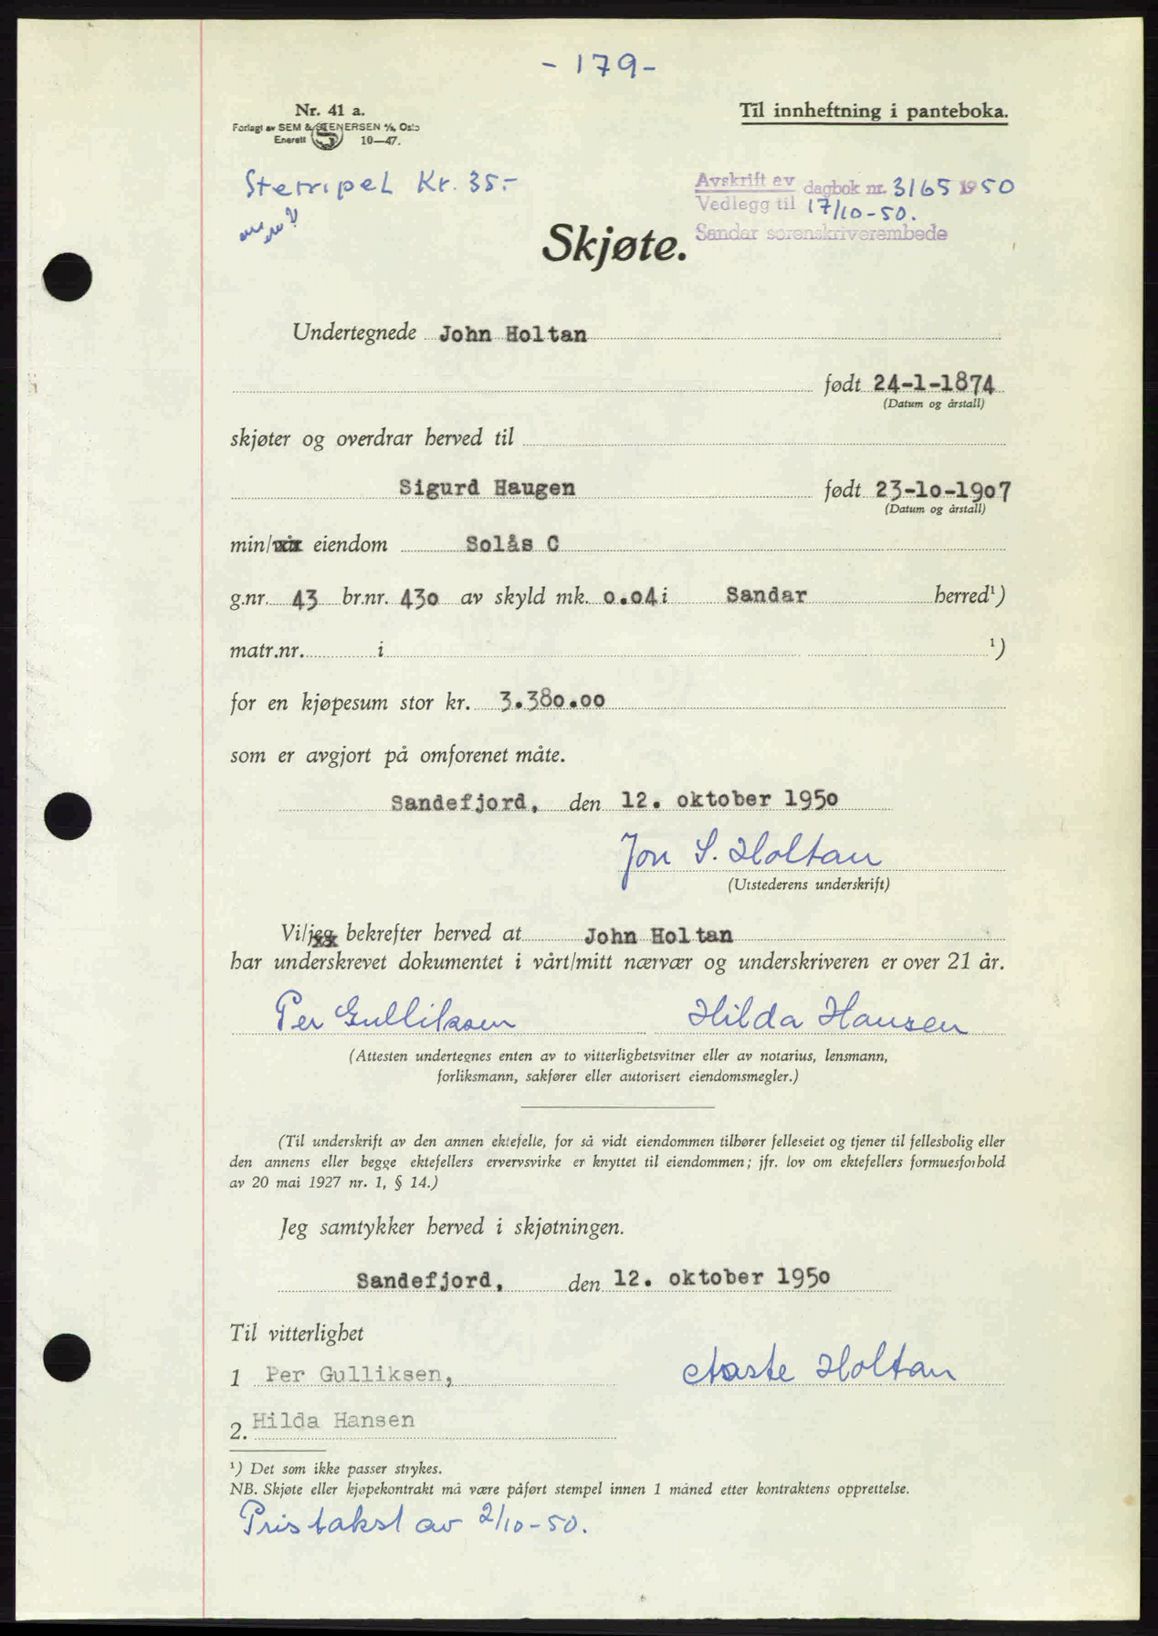 - 179 -
Nr. 41 a.
Forlagt av SEM & STENERSEN A/S, Oslo
Enerett 10—47.
Til innheftning i panteboka.
Stempel Kr. 35.-
Avskrift av dagbok nr. 3165 1950
Vedlegg til 17/10-50.
Sandar sorenskriverembede
Skjøte.
Undertegnede John Holtan
født 24-1-1874
(Datum og årstall)
skjøter og overdrar herved til
Sigurd Haugen født 23-10-1907
(Datum og årstall)
min/vår eiendom Solås C
g.nr. 43 br.nr. 430 av skyld mk. 0.04 i Sandar herred¹)
matr.nr. i ¹)
for en kjøpesum stor kr. 3.380.00
som er avgjort på omforenet måte.
Sandefjord, den 12. oktober 1950
Jon S. Holtan
(Utstederens underskrift)
Vi/jeg bekrefter herved at John Holtan
har underskrevet dokumentet i vårt/mitt nærvær og underskriveren er over 21 år.
Per Gulliksen Hilda Hansen
(Attesten undertegnes enten av to vitterlighetsvitner eller av notarius, lensmann,
forliksmann, sakfører eller autorisert eiendomsmegler.)
(Til underskrift av den annen ektefelle, for så vidt eiendommen tilhører felleseiet og tjener til fellesbolig eller
den annens eller begge ektefellers ervervsvirke er knyttet til eiendommen; jfr. lov om ektefellers formuesforhold
av 20 mai 1927 nr. 1, § 14.)
Jeg samtykker herved i skjøtningen.
Sandefjord, den 12. oktober 1950
Til vitterlighet
1 Per Gulliksen, Aaste Holtan
2. Hilda Hansen
¹) Det som ikke passer strykes.
NB. Skjøte eller kjøpekontrakt må være påført stempel innen 1 måned etter kontraktens opprettelse.
Pristakst av 2/10-50.